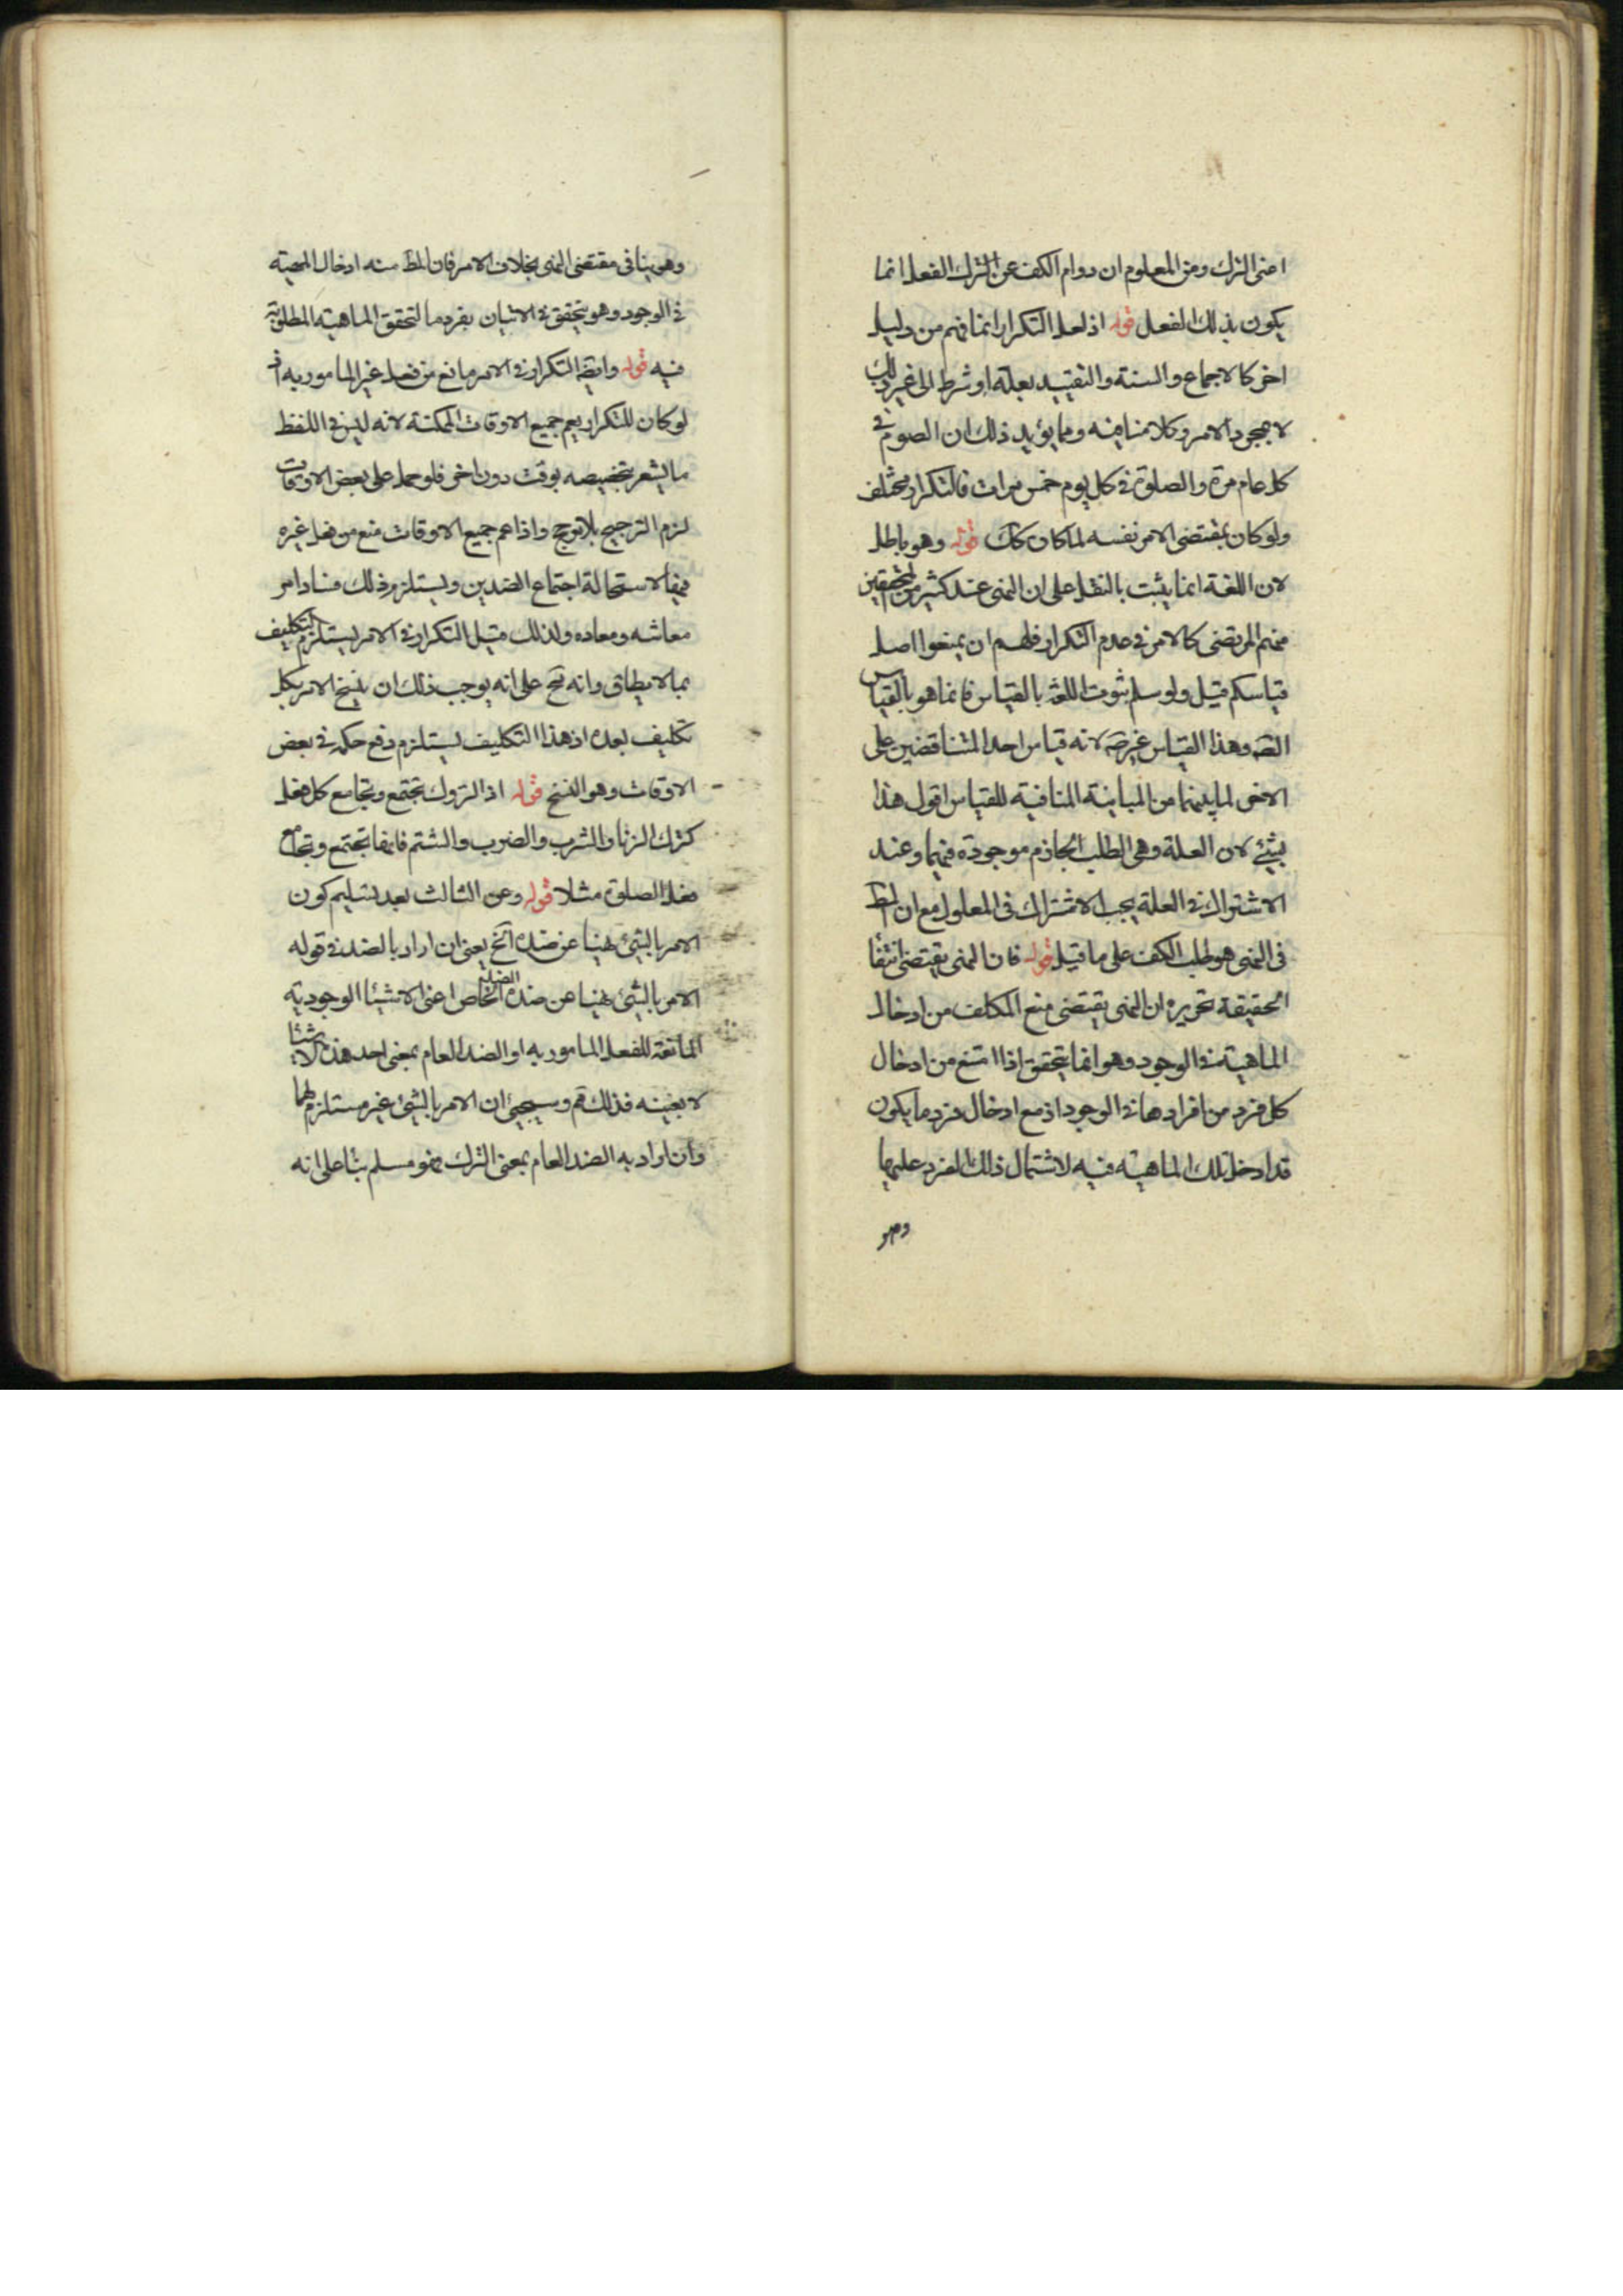 اعنى الترك ومن المعلوم ان دوام الكف عن الترك الفعل انما
يكون بذلك الفعل قوله اذ لعل التكرار انما فهم من دليل
اخر كالاجماع والسنة والتقييد بعلة او شرط الى غير ذلك
لا بمجرد الامر وكلامنا فيه ومما يؤيد ذلك ان الصوم فى
كل عام مرة والصلوة فى كل يوم خمس مرات فالتكرار مختلف
ولو كان بمقتضى الامر نفسه لما كان كك قوله وهو باطل
لان اللغة انما يثبت بالنقل على ان النهى عند كثير من المحققين
منهم المرتضى كالامر فى عدم التكرار فلهم ان يمنعوا اصل
قياسكم قيل ولو سلم ثبوت اللغة بالقياس فانما هو بالقياس
الصه وهذا القياس غير صه لانه قياس احد المتناقضين على
الاخر لما بينهما من المباينة المنافية للقياس اقول هذا
بشئ لان العلة وهى الطلب الجازم موجودة فيهما وعند
الاشتراك فى العلة يجب الاشتراك فى المعلول مع ان المط
فى النهى هو طلب الكف على ما قيل قوله فان النهى يقتضى انتفا
الحقيقة تحريره ان النهى يقتضى منع المكلف من ادخال
الماهية فى الوجود وهو انما يتحقق اذا امتنع من ادخال
كل فرد من افرادها فى الوجود اذ مع ادخال فرد ما يكون
قد ادخل تلك الماهية فيه لاشتمال ذلك الفرد عليها
وهو
وهو ينافى مقتضى النهى بخلاف الامر فان المط منه ادخال المهية
فى الوجود وهو يتحقق فى الاتيان بفرد ما لتحقق الماهية المطلوبة
فيه قوله وايضا التكرار فى الامر مانع من فعل غير المامور به اذ
لو كان للتكرار يعم جميع الاوقات الممكنة لانه ليس فى اللفظ
ما يشعر بتخصيصه بوقت دون اخر فلو حمل على بعض الاوقات
لزم الترجيح بلا مرجح واذا عم جميع الاوقات منع من فعل غيره
فيها لاستحالة اجتماع الضدين ويستلزم ذلك فساد امر
معاشه ومعاده ولذلك قيل التكرار فى الامر يستلزم التكليف
بما لا يطاق وانه مح على انه يوجب ذلك ان ينسخ الامر بكل
تكليف بعده اذ هذا التكليف يستلزم دفع حكمه فى بعض
الاوقات وهو النسخ قوله اذ التروك تجتمع وتجامع كل فعل
كترك الزنا والشرب والضرب والشتم فانها تجتمع وتجامع
فعل الصلوة مثلا قوله وعن الثالث بعد تسليم كون
الامر بالشئ نهيا عن ضده الخ يعنى ان اراد بالضد فى قوله
الامر بالشئ نهيا عن ضده الضد الخاص اعنى الاشيئا الوجودية
المانعة للفعل المامور به او الضد العام بمعنى احد هذه الاشيا
لا بعينه فذلك مم وسيجئ ان الامر بالشئ غير مستلزم لهما
وان اراد به الضد العام بمعنى الترك فهو مسلم بنا على انه